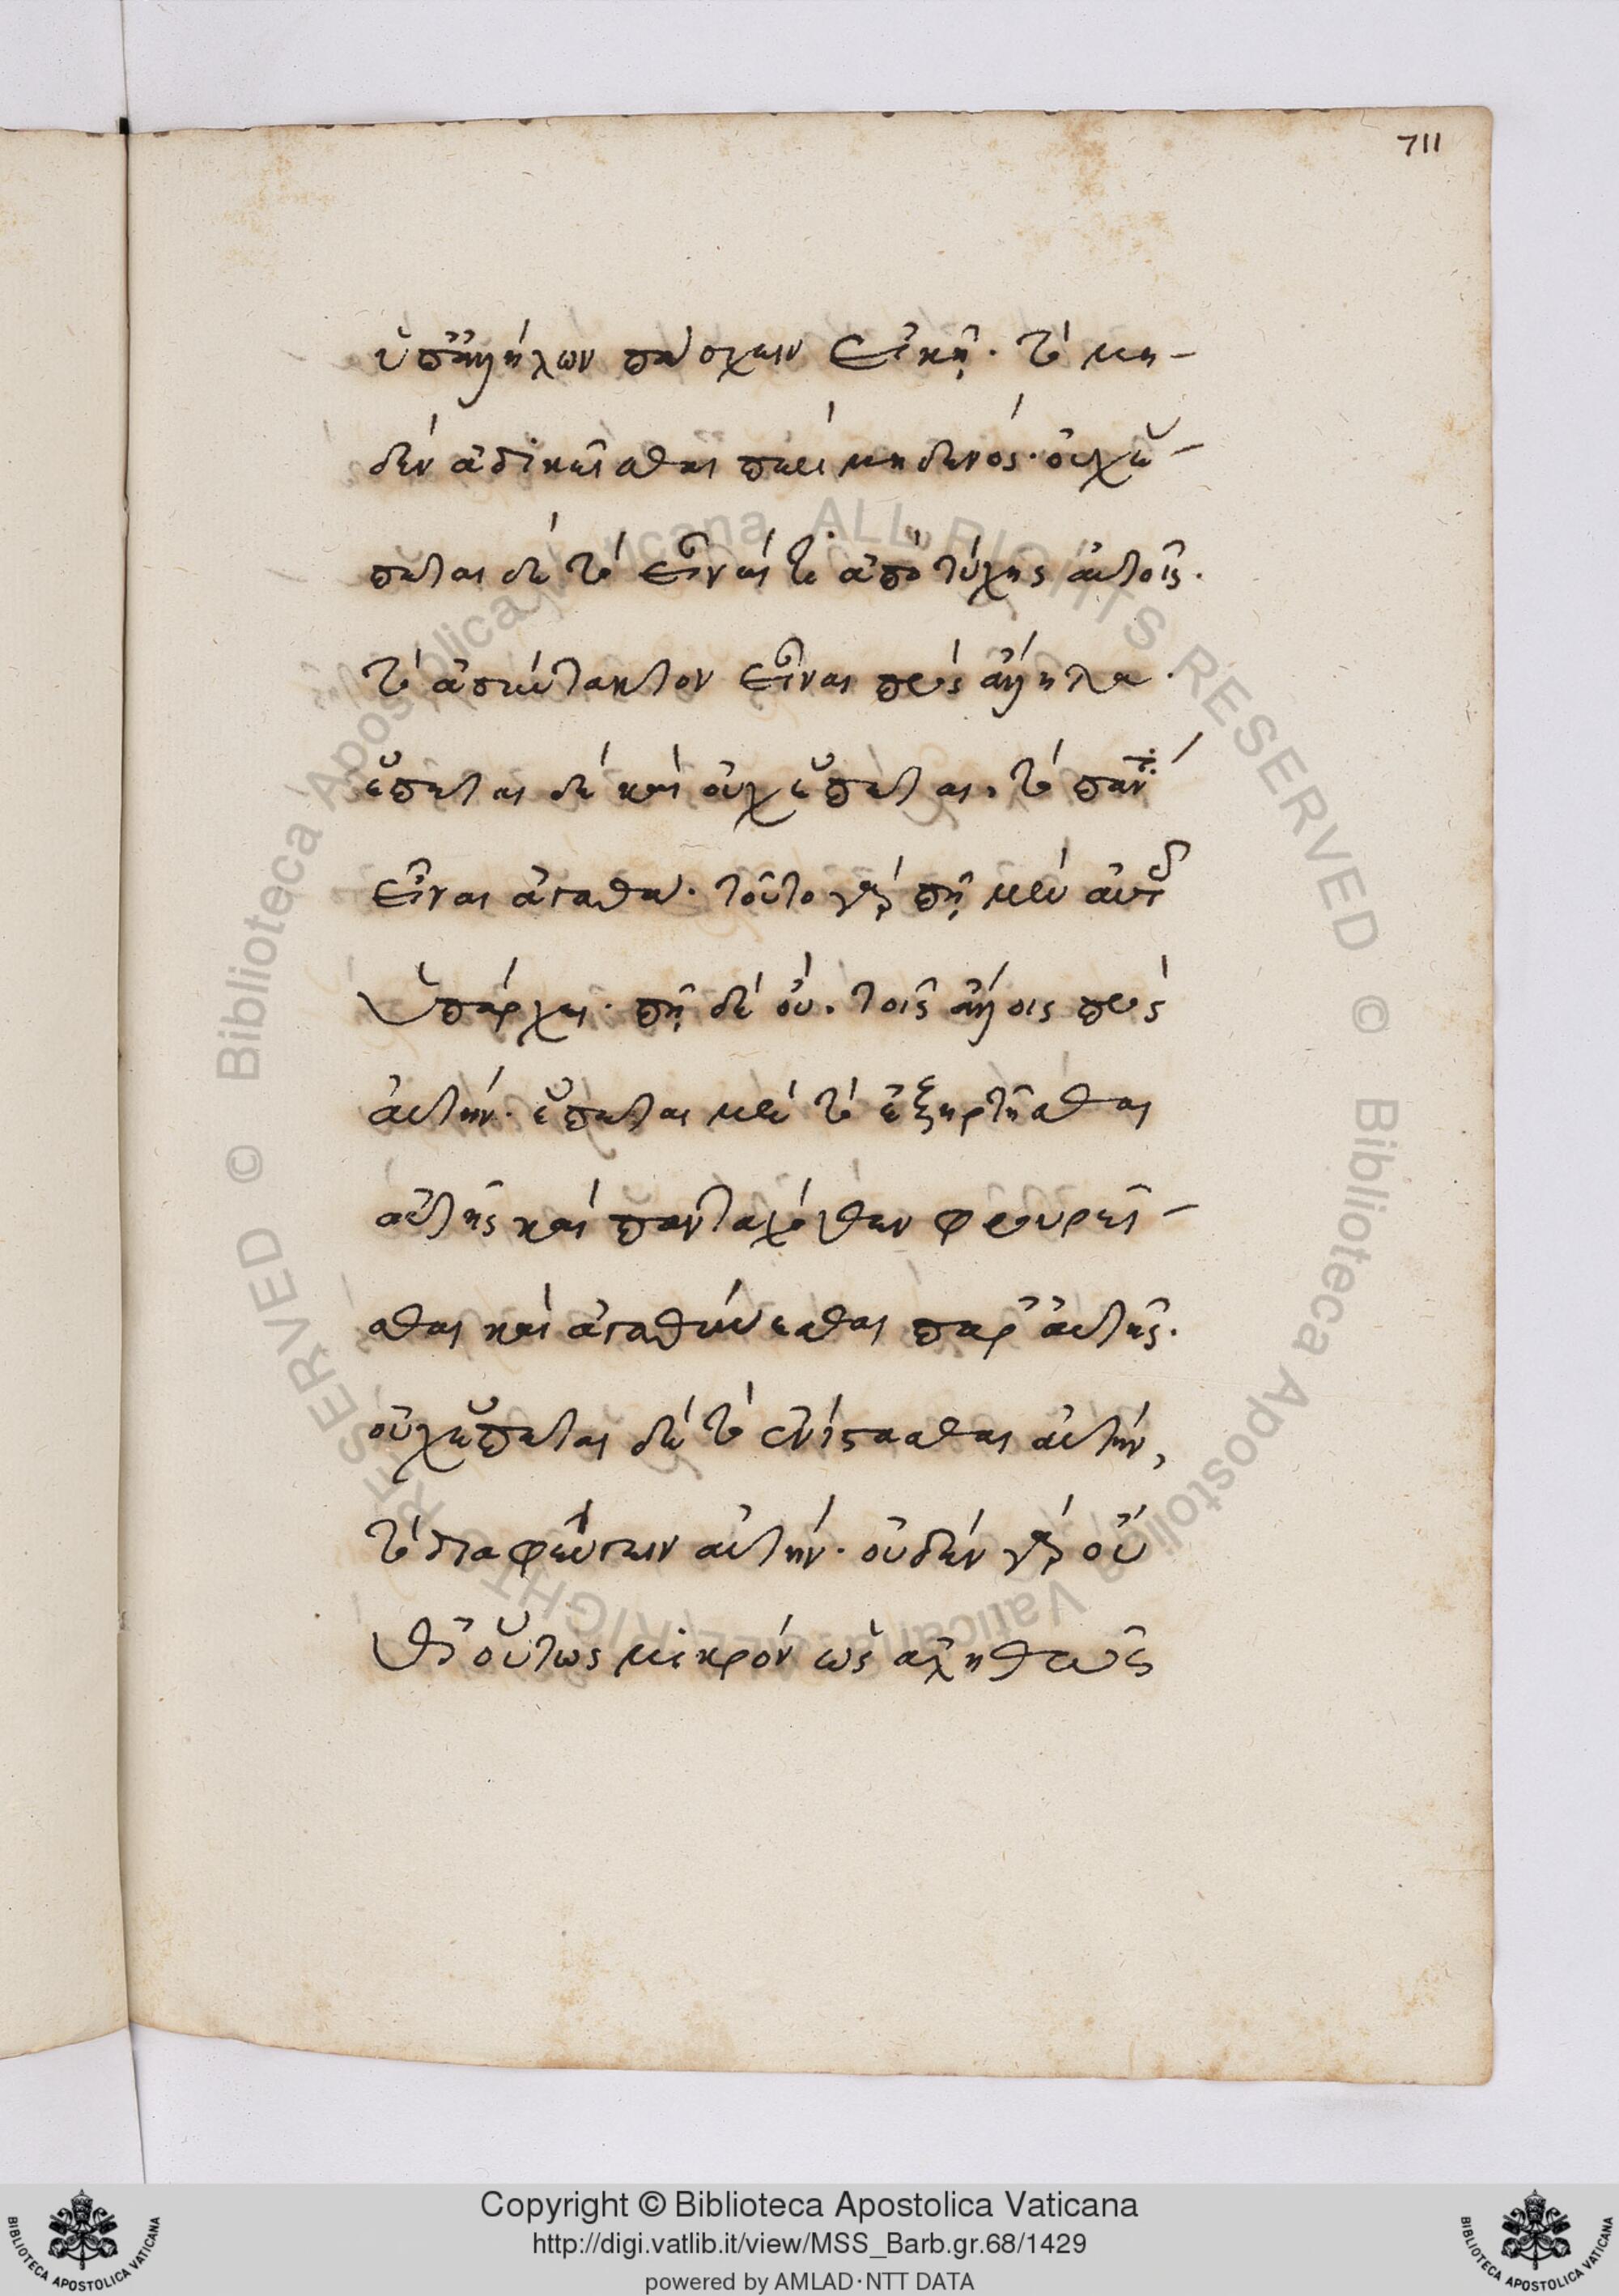 711
ὑπ' ἀλλήλων πάσχειν εἰκῆ. τὸ μη-
δὲν ἀδικεῖσθαι περὶ μηδενός. οὐχ ἕ-
πεται δὲ τὸ εἶναί τι ἀπὸ τύχης αὐτοῖς.
τὸ ἀσύντακτον εἶναι πρὸς ἄλληλα.
ἕπεται δὲ καὶ οὐχ ἕπεται, τὸ πάντα
εἶναι ἀγαθά. τοῦτο γὰρ πῇ μὲν αὐτοῖς
ὑπάρχει. πῇ δὲ οὔ. τοῖς ἄλλοις πρὸς
αὐτήν. ἕπεται μὲν τὸ ἐξηρτῆσθαι
αὐτῆς καὶ πανταχόθεν φρουρεῖ-
σθαι καὶ ἀγαθύνεσθαι παρ' αὐτῆς.
οὐχ ἕπεται δὲ τὸ ἐνίστασθαι αὐτήν,
τὸ διαφεύγειν αὐτήν. οὐδὲν γὰρ οὔ
θ' οὕτως μικρὸν ὡς ἀληθῶς
Copyright © Biblioteca Apostolica Vaticana
http://digi.vatlib.it/view/MSS_Barb.gr.68/1429
powered by AMLAD·NTT DATA
BIBLIOTECA APOSTOLICA VATICANA
BIBLIOTECA APOSTOLICA VATICANA
© Biblioteca Apostolica Vaticana ALL RIGHTS RESERVED
© Biblioteca Apostolica Vaticana ALL RIGHTS RESERVED